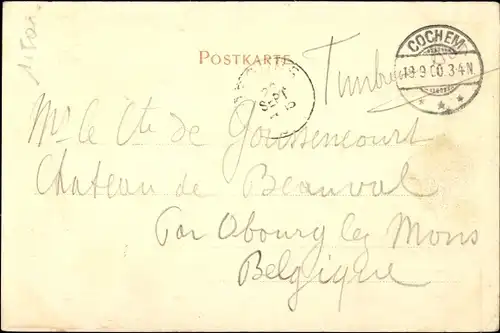 POSTKARTE
COCHEM
19 9 00. 3-4 N.
SEPT
Mr. le Cte de Joussencourt
Chateau de Beauval
Par Obourg lez Mons
Belgique